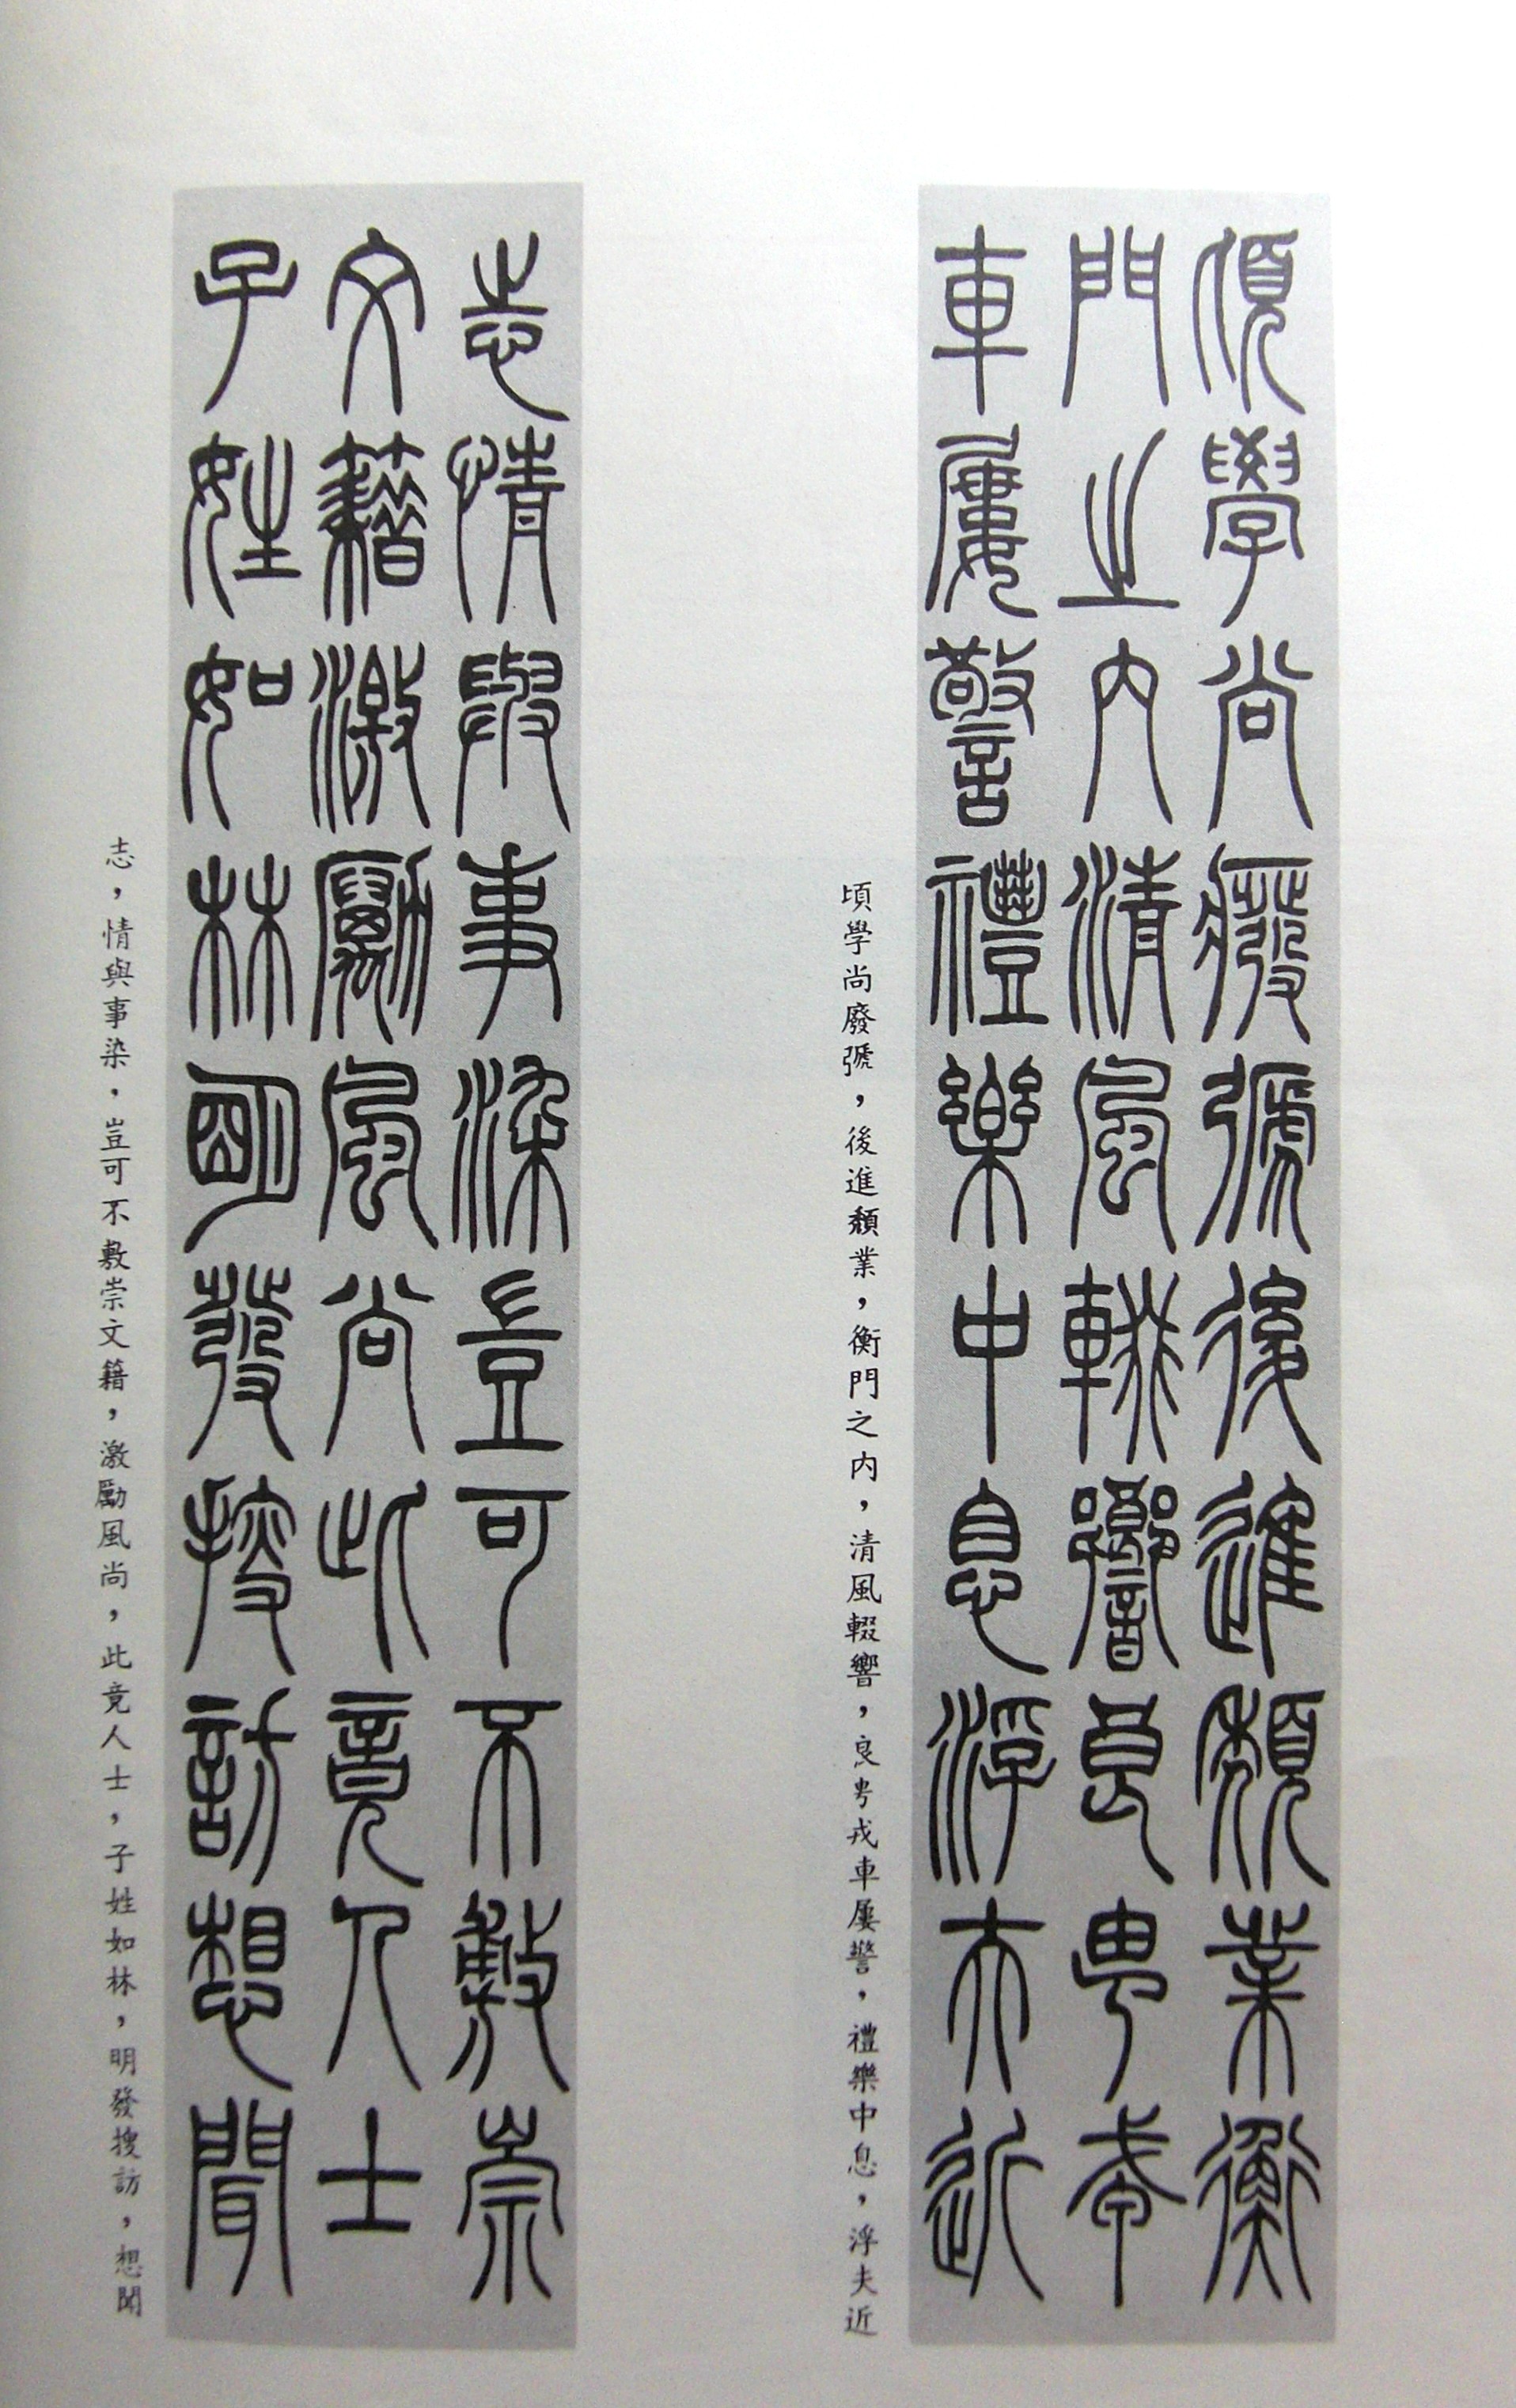 頃學尚廢號後進頹業衡
門之内清風輟響良甹戎
車屢警禮樂中息浮夫近
頃學尚廢號，後進頹業，衡門之内，清風輟響，良甹戎車屢警，禮樂中息，浮夫近
志情與事染豈可不敷崇
文籍激勵風尚此竟人士
子姓如林朙發搜訪想聞
志，情與事染．豈可不敷崇文籍，激勵風尚，此竟人士，子姓如林，明發搜訪，想聞